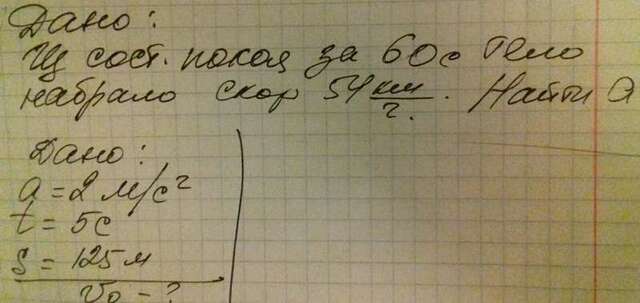 Дано:
Из сост. покоя за 60с тело
набрало скор 54 км/г. Найти a
Дано:
a = 2 м/с²
t = 5с
S = 125 м
V₀ - ?